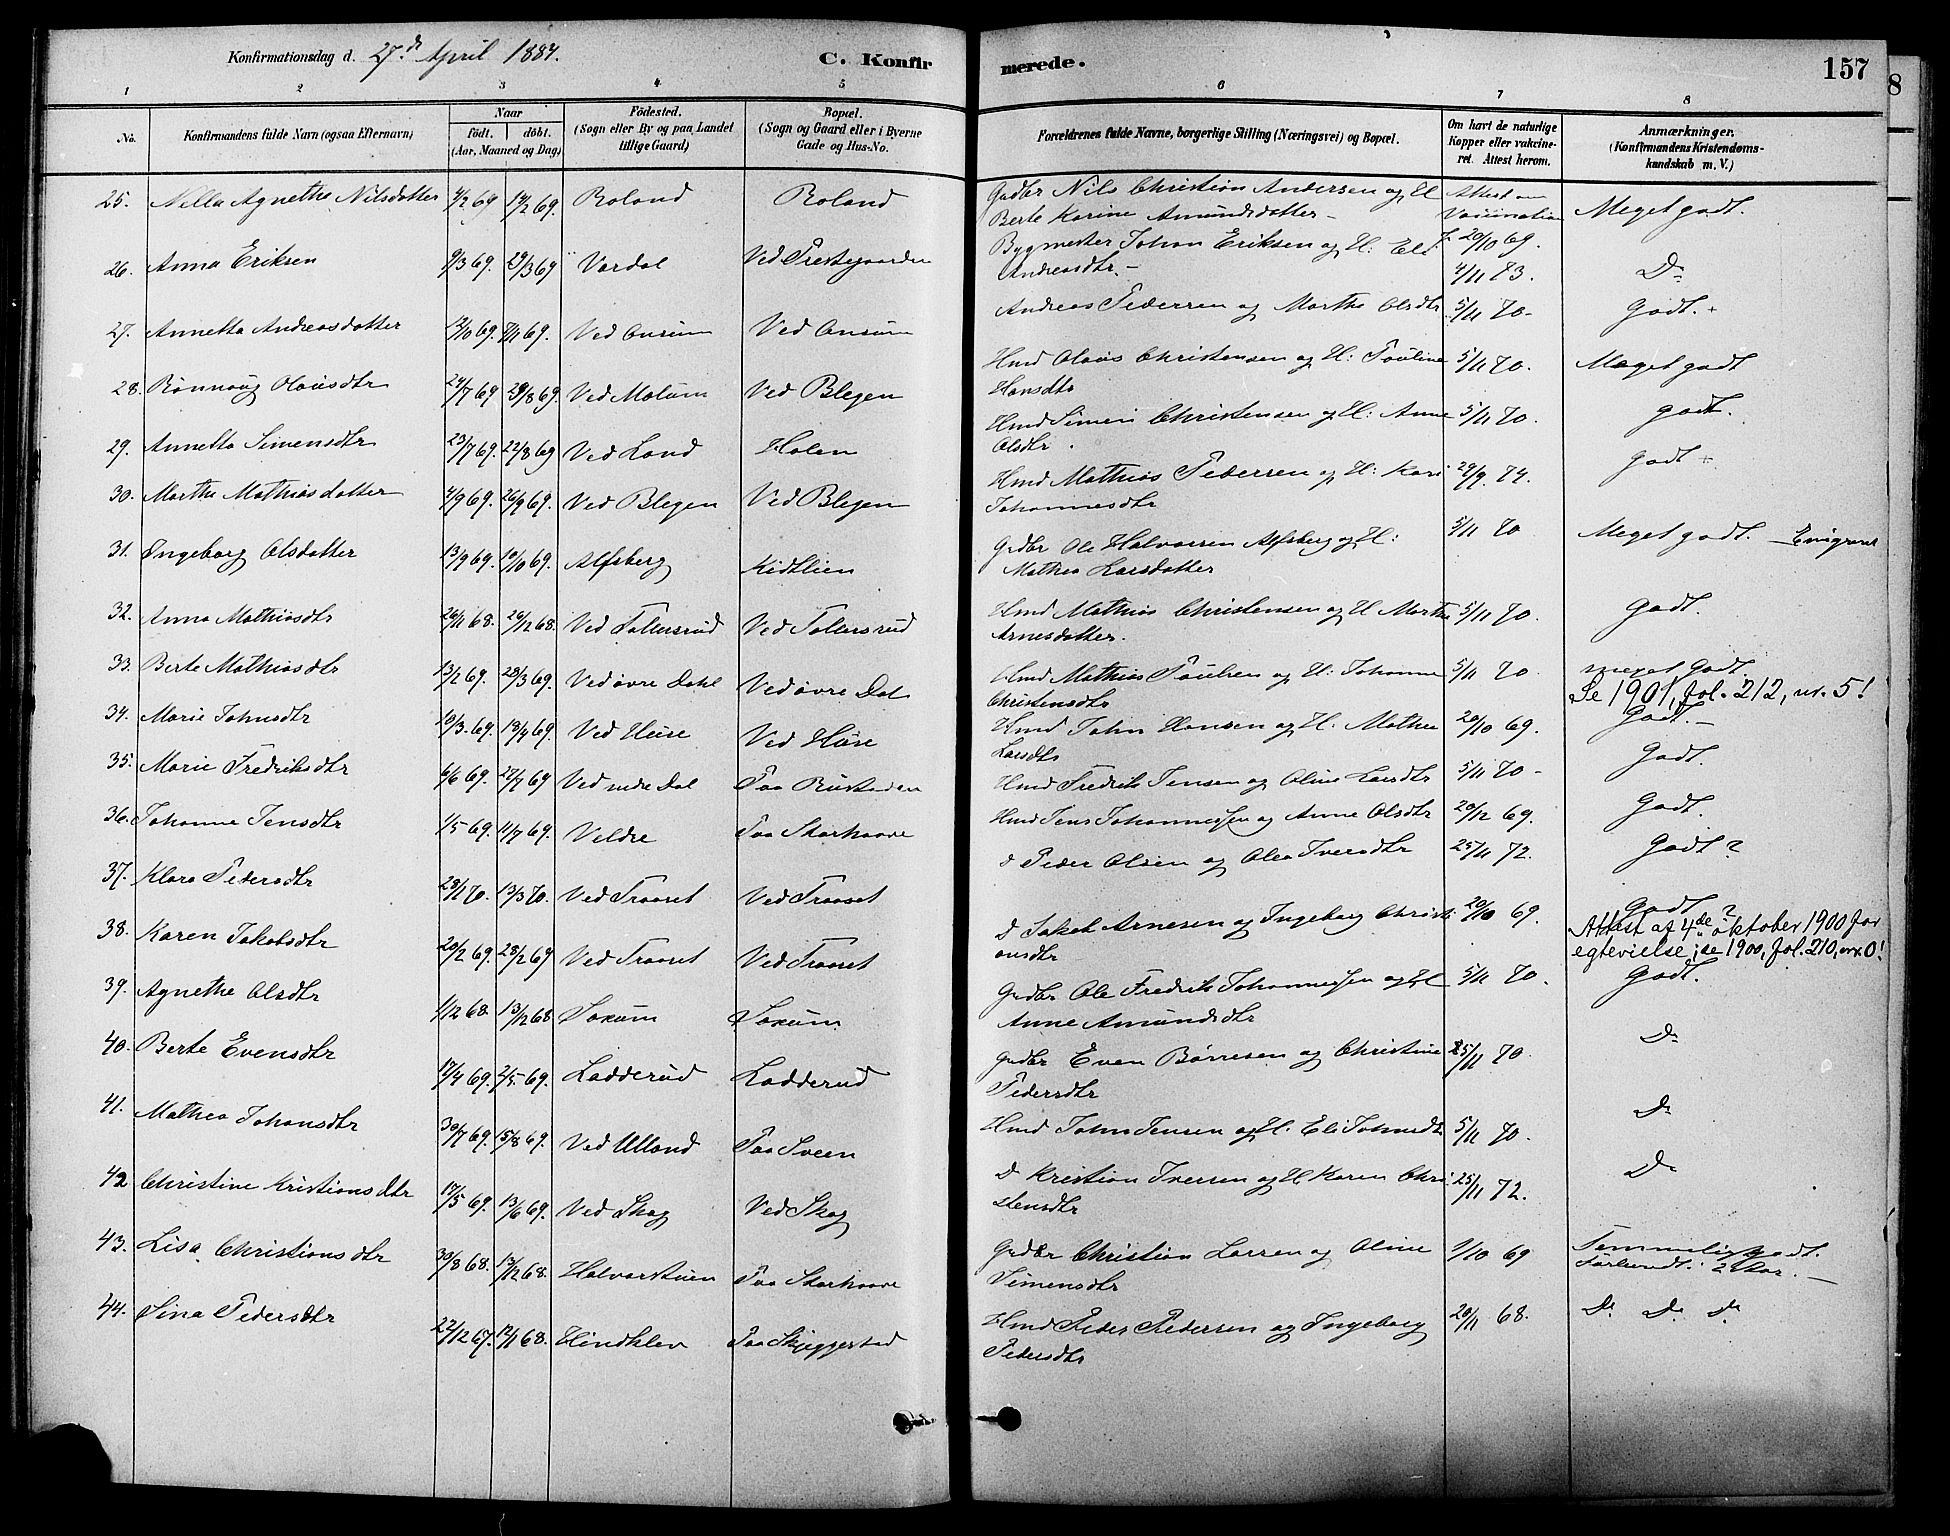 Konfirmationsdag d. 27de April 1884. C. Konfir merede. 157
1 2 3 4 5 6 7 8
No. Konfirmandens fulde Navn (ogsaa Efternavn) Naar født. døbt. (Aar, Maaned og Dag) Fødested. (Sogn eller By og paa Landet tillige Gaard) Bopæl. (Sogn og Gaard eller i Byerne Gade og Hus-No. Forældrenes fulde Navne, borgerlige Stilling (Næringsvei) og Bopæl. Om havt de naturlige Kopper eller vakcineret. Attest herom. Anmærkninger. (Konfirmandens Kristendomskundskab m. V.)
25. Nella Agnethe Nilsdatter 4/2 69 14/2 69. Roland Roland Gadbr Nils Christian Andersen og H Attest om Meget godt.
Berte Karine Amundsdatter - Vaccination
26. Anna Eriksen 9/3 69. 29/3 69 Vardal Ved Prestegaarden Bygmester Johan Eriksen og H: Eli 20/10 69.
Andreasdtr. - 4/11 73. Do
27. Annetta Andreasdatter 12/10 69. 7/11 69. Ved Onsum Ved Onsum Andreas Pedersen og Marthe Olsdtr. 5/11 70- Godt. +
28. Rønnaug Olausdtr 24/7 69 29/8 69. Ved Molum Ved Blegen Hmd Olaus Christensen og H: Pauline 5/11 70. Meget godt
Hansdtr
29. Annetta Simensdtr 23/7 69. 22/8 69 Ved Land Holen Hmd Simen Christensen og H: Anne 5/11 70. godt.
Olsdtr.
30. Marthe Mathiasdatter 4/9 69. 26/9 69. Ved Blegen Ved Blegen Hmd Mathias Pedersen og H: Kari 29/9 74. godt +
Johannesdtr
31. Ingeborg Olsdatter 13/9 69. 10/10 69. Alfsberg Kidtlien Grdbr Ole Halvorsen Alfsberg og H: 5/11 70 Meget godt. - Emigrant
Mathea Larsdatter
32. Anna Mathiasdtr 26/11 68. 26/12 68. Ved Tollersrud Ved Tollersrud Hmd Mathias Christensen og H Marthe 5/11 70. Godt.
Arnesdatter.
33. Berte Mathiasdtr 13/2 69. 28/3 69. Ved øvre Dahl Ved øvre Dal Hmd Mathias Paulsen og H: Johanne 5/11 70. meget Godt.
Christensdtr Se 1901, fol. 212, nr. 5!
34. Marie Johnsdtr 10/3 69. 13/4 69. Ved Huse Ved Huse Hmd John Hansen og H: Mathea 20/10 69. Godt. -
Larsdtr
35. Marie Fredriksdtr 6/6 69. 27/7 69 Ved nedre Dal Paa Rustaden Hmd Fredrik Jensen og Oline Larsdtr 5/11 70- Godt.
36. Johanne Jensdtr 1/5 69. 11/7 69. Veldre Paa Skarhaave Hmd Jens Johannessen og Anne Olsdtr 20/12 69. Godt.
37. Klara Pedersdtr 28/1 70. 13/3 70. Ved Traaset Ved Traaset d Peder Olsen og Olea Iversdtr 25/11 72. Godt?
38. Karen Jakobsdtr 20/2 69. 28/2 69 Ved Traaset Ved Traaset d Jakob Arnesen og Ingeborg Christi 20/10 69. Godt?
ansdtr Attest af 4de oktober 1900 for
egtevielse; se 1900, fol. 210,
39. Agnethe Olsdtr 1/12 68. 13/12 68 Soxum Soxum Grdbr Ole Fredrik Johannessen og H 5/11 70. Godt.
Anne Amundsdtr
40. Berte Evensdtr 17/4 69. 2/5 69. Ladderud Ladderud Grdbr Even Børresen og Christine 25/11 70. Do
Pedersdtr
41. Mathea Johansdtr 30/7 69. 15/8 69. Ved Ulland Paa Sveen Hmd John Jensen og H. Eli Johnsdtr 5/11 70. Do
42 Christine Kristiansdtr 17/5 69. 13/6 69. Ved Skog Ved Skog d Kristian Iversen og H Karen Chri 25/11 72. Do
stensdtr
43. Lisa Christiansdtr 30/8 68. 13/12 68. Halvorstuen Paa Skarhaave Grdbr Christian Larsen og Oline 1/10 69 Temmelig godt.
Simensdtr
44. Sina Pedersdtr 22/12 67. 12/1 68. Hindklev Paa Skjeggestad Hmd Peder Pedersen og Ingeborg 20/11 68. Do Do Do
Pedersdtr